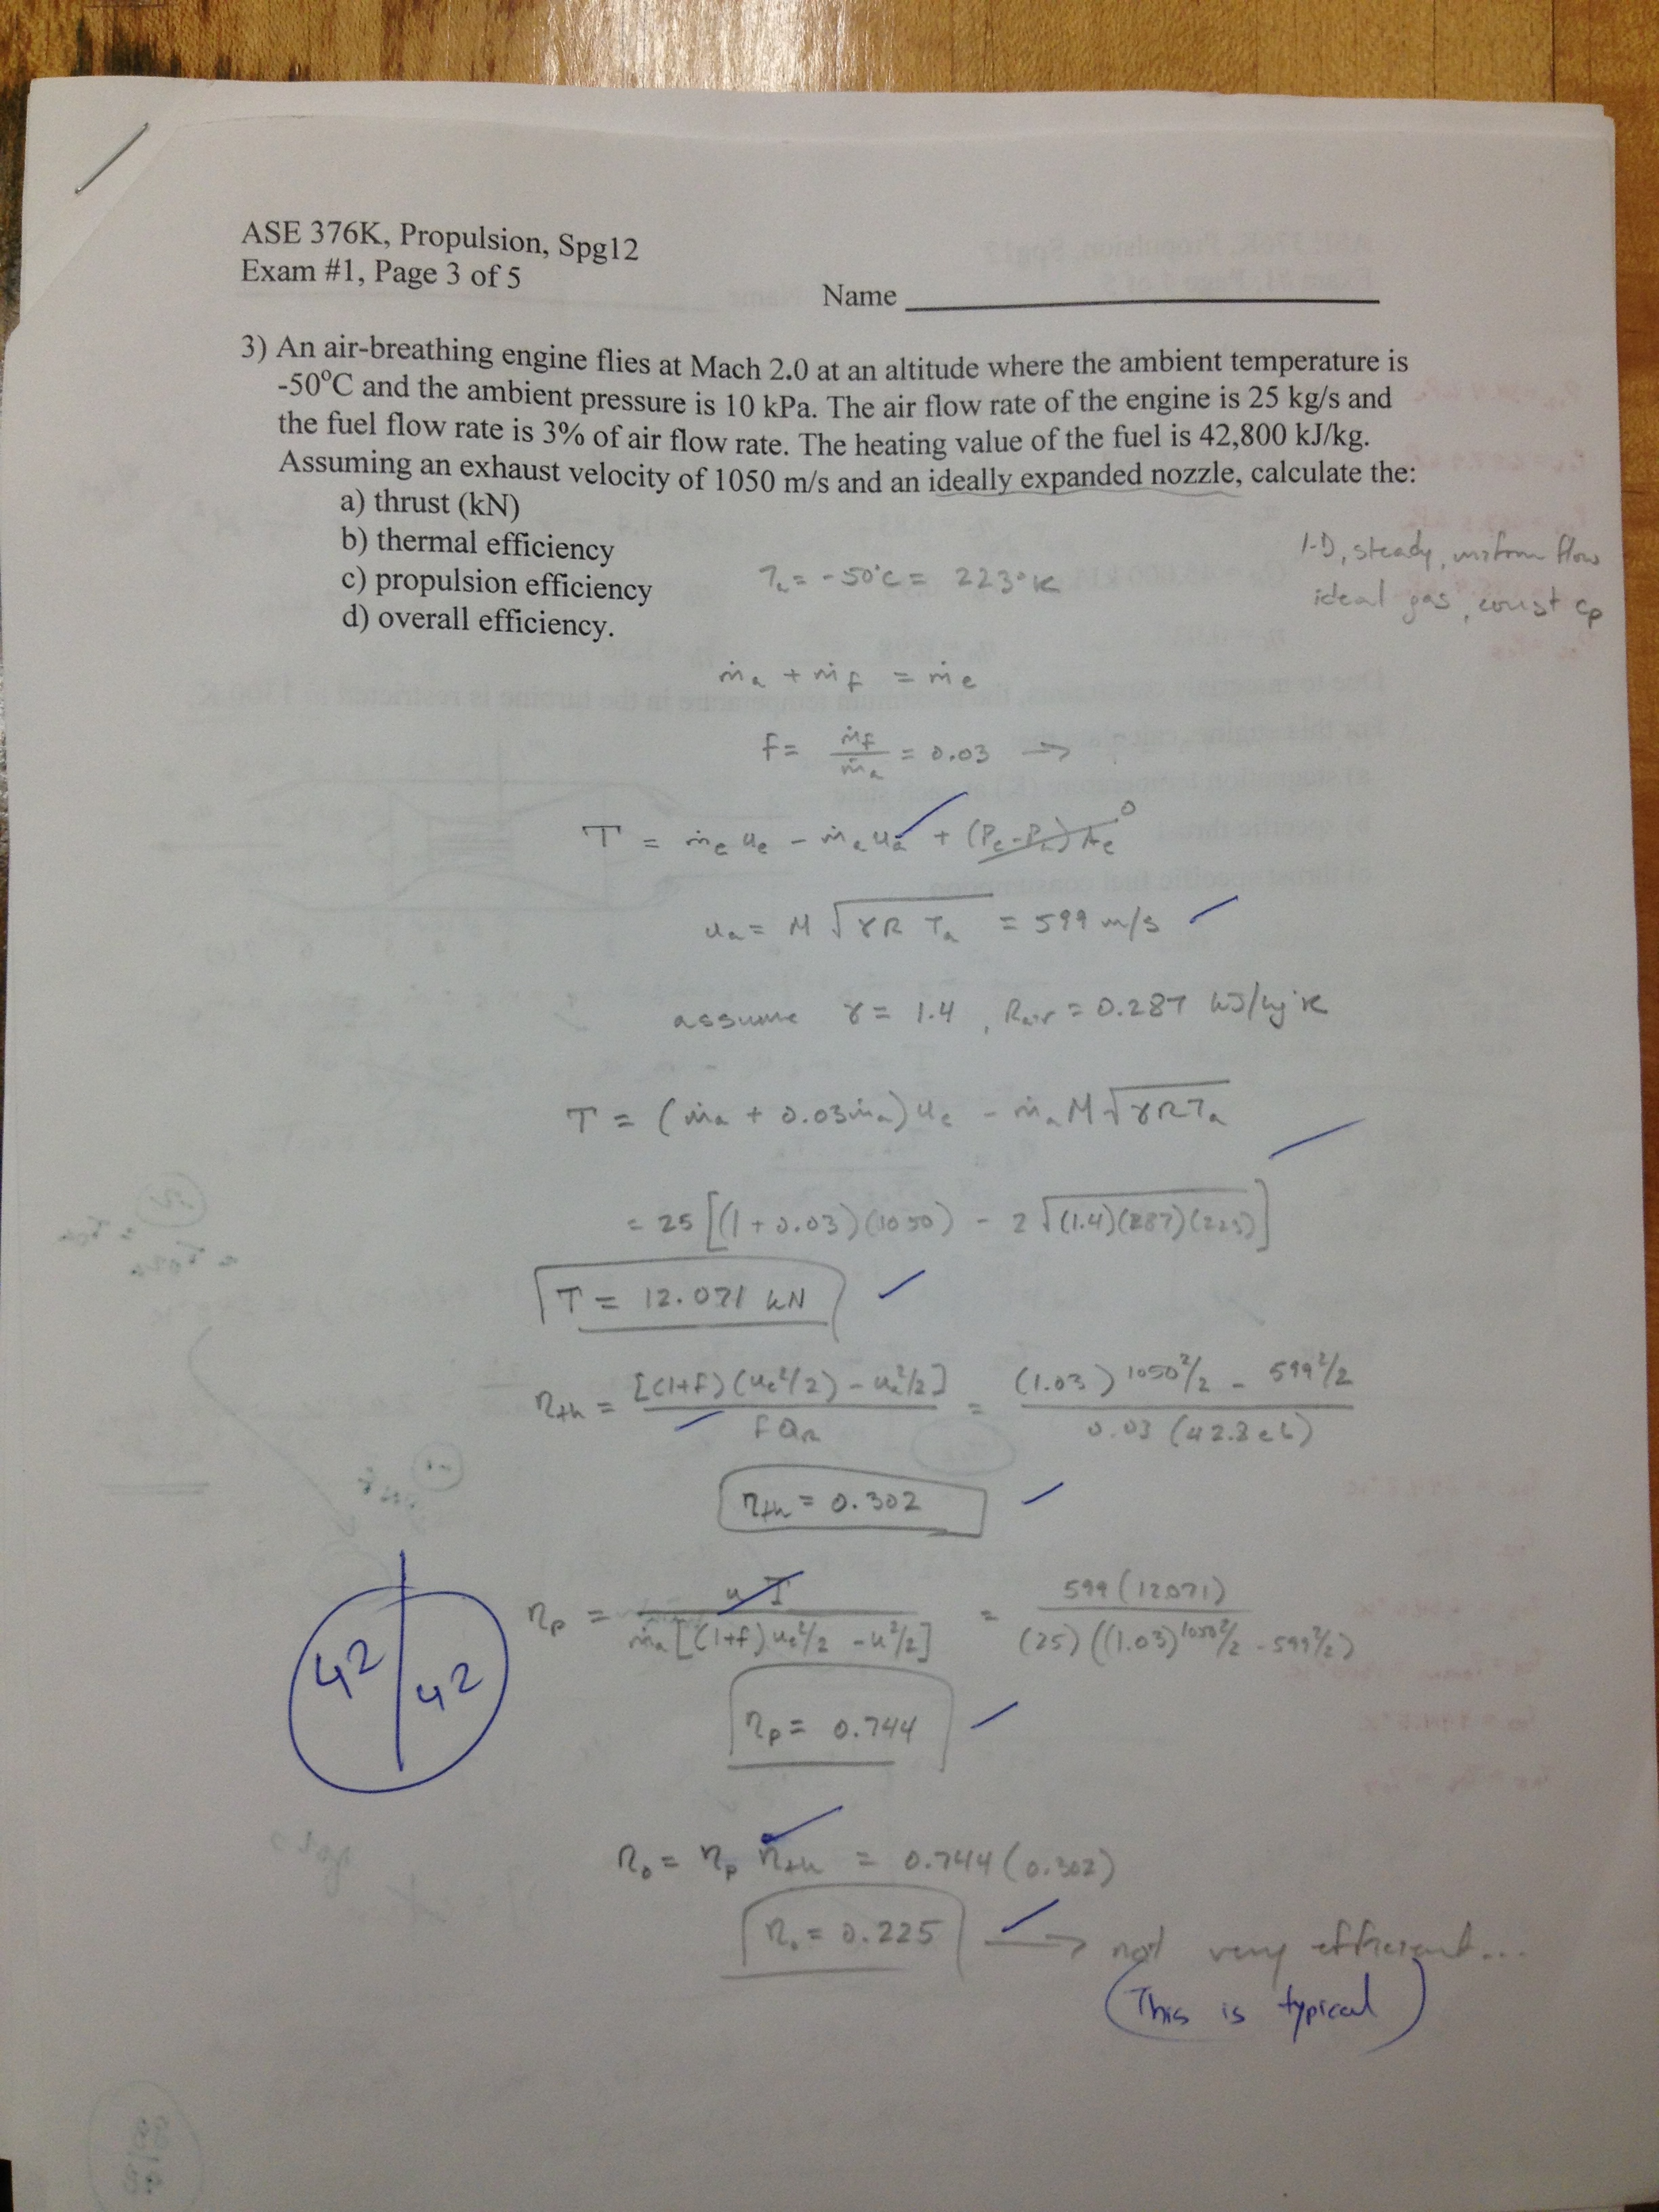 ASE 376K, Propulsion, Spg12
Exam #1, Page 3 of 5
Name
3) An air-breathing engine flies at Mach 2.0 at an altitude where the ambient temperature is
-50°C and the ambient pressure is 10 kPa. The air flow rate of the engine is 25 kg/s and
the fuel flow rate is 3% of air flow rate. The heating value of the fuel is 42,800 kJ/kg.
Assuming an exhaust velocity of 1050 m/s and an ideally expanded nozzle, calculate the:
a) thrust (kN)
b) thermal efficiency
c) propulsion efficiency
d) overall efficiency.
1-D, steady, uniform flow
ideal gas, const cp
Ta = -50°C = 223°K
ṁa + ṁf = ṁe
f = ṁf/ṁa = 0.03 →
T = ṁe ue - ṁa ua + (Pe-Pa)Ae 0
ua = M √(γR Ta) = 599 m/s
assume γ = 1.4, Rair = 0.287 kJ/kg·K
T = (ṁa + 0.03ṁa)ue - ṁa M√(γRTa)
= 25 [(1+0.03)(1050) - 2√((1.4)(287)(223))]
T = 12.071 kN
ηth = [(1+f)(ue²/2) - ua²/2] / fQR = ((1.03) 1050²/2 - 599²/2) / (0.03 (42.8e6))
ηth = 0.302
ηp = uT / ṁa[(1+f)ue²/2 - u²/2] = 599(12071) / (25)((1.03)1050²/2 - 599²/2)
42 | 42
ηp = 0.744
ηo = ηp ηth = 0.744(0.302)
ηo = 0.225 → not very efficient...
(This is typical)